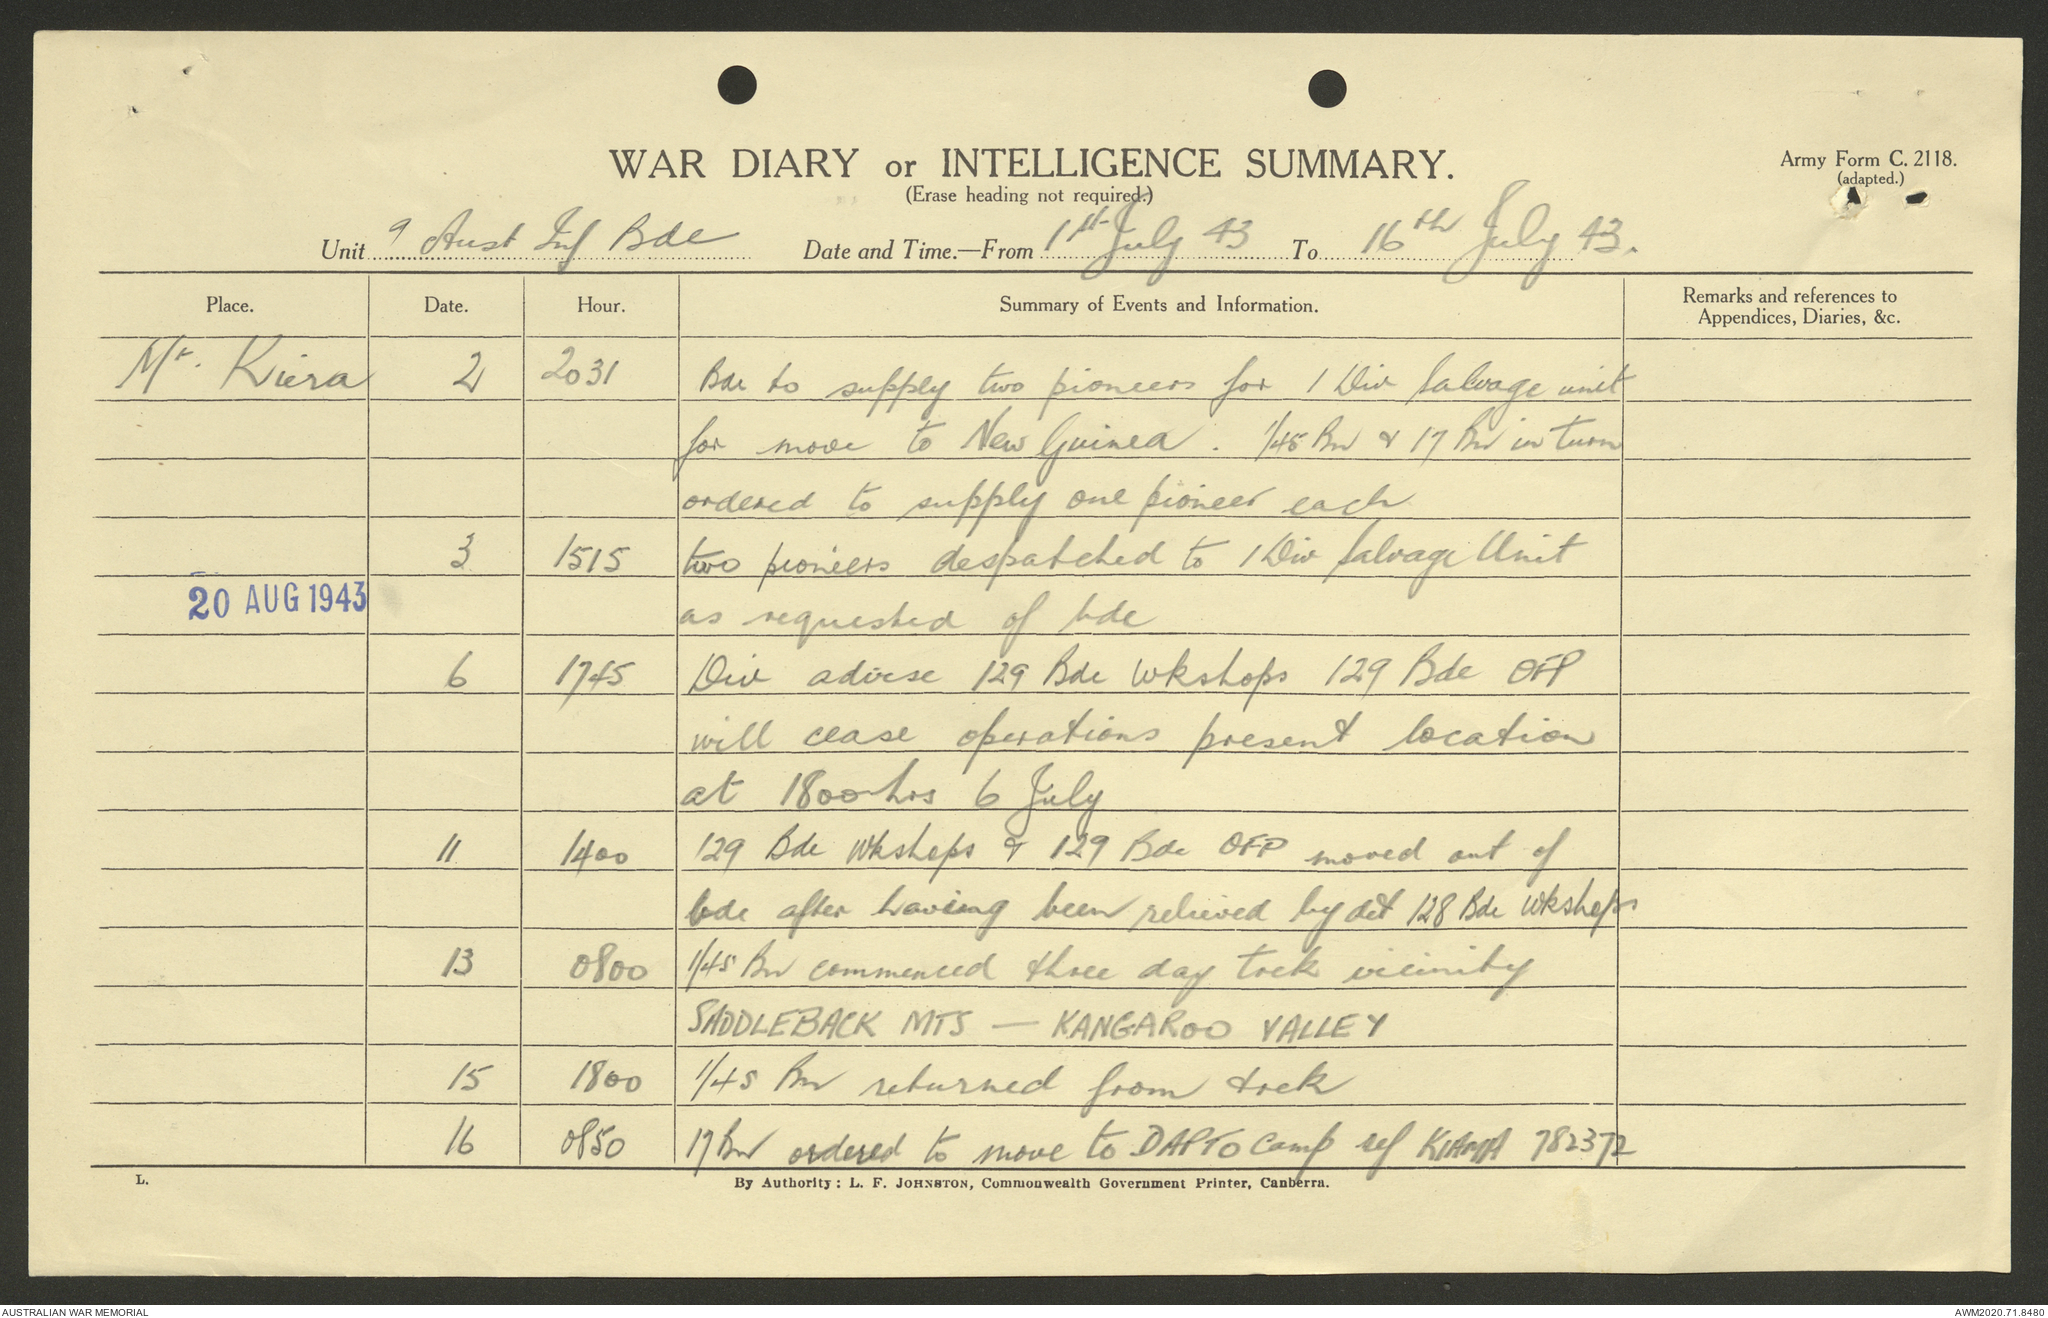 WAR DIARY or INTELLIGENCE SUMMARY.
Army Form C. 2118.
(adapted.)
(Erase heading not required.)
Unit 9 Aust Inf Bde Date and Time.—From 1st July 43 To 16th July 43.
Place. Date. Hour. Summary of Events and Information. Remarks and references to
Appendices, Diaries, &c.
Mt. Kiera 2 2031 Bde to supply two pioneers for 1 Div Salvage unit
for move to New Guinea. 1/45 Bn & 17 Bn in turn
ordered to supply one pioneer each
3 1515 two pioneers despatched to 1 Div Salvage Unit
20 AUG 1943
as requested of bde
6 1745 Div advise 129 Bde Wkshops 129 Bde OFP
will cease operations present location
at 1800 hrs 6 July
11 1400 129 Bde Wkshops & 129 Bde OFP moved out of
bde after having been relieved by det 128 Bde Wkshops
13 0800 1/45 Bn commenced three day trek vicinity
SADDLEBACK MTS — KANGAROO VALLEY
15 1800 1/45 Bn returned from trek
16 0850 17 Bn ordered to move to DAPTO Camp ref KIAMA 782372
L.
By Authority: L. F. JOHNSTON, Commonwealth Government Printer, Canberra.
AUSTRALIAN WAR MEMORIAL
AWM2020.71.8480